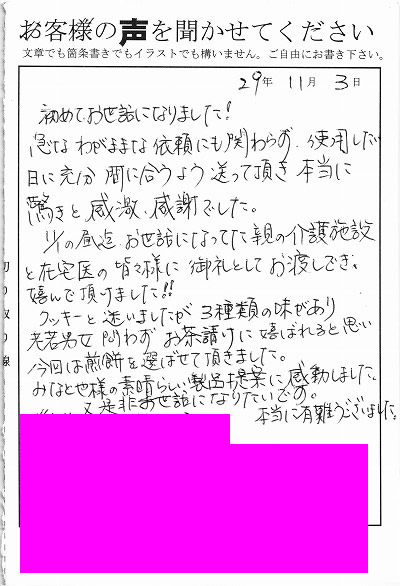 お客様の声を聞かせてください
文章でも箇条書きでもイラストでも構いません。ご自由にお書き下さい。
29年 11月 3日
初めてお世話になりました!
急なわがままな依頼にも関わらず、使用したい
日に充分間に合うよう送って頂き本当に
驚きと感激、感謝でした。
お世話になってた親の介護施設
と在宅医の皆々様に御礼としてお渡しでき、
嬉んで頂けました!!
クッキーと迷いましたが3種類の味があり
老若男女問わずお茶請けに嬉ばれると思い
今回は煎餅を選ばせて頂きました。
みなとや様の素晴らしい製品提案に感動しました。
又是非お世話になりたいです。
本当に有難うございました。
切り取り線